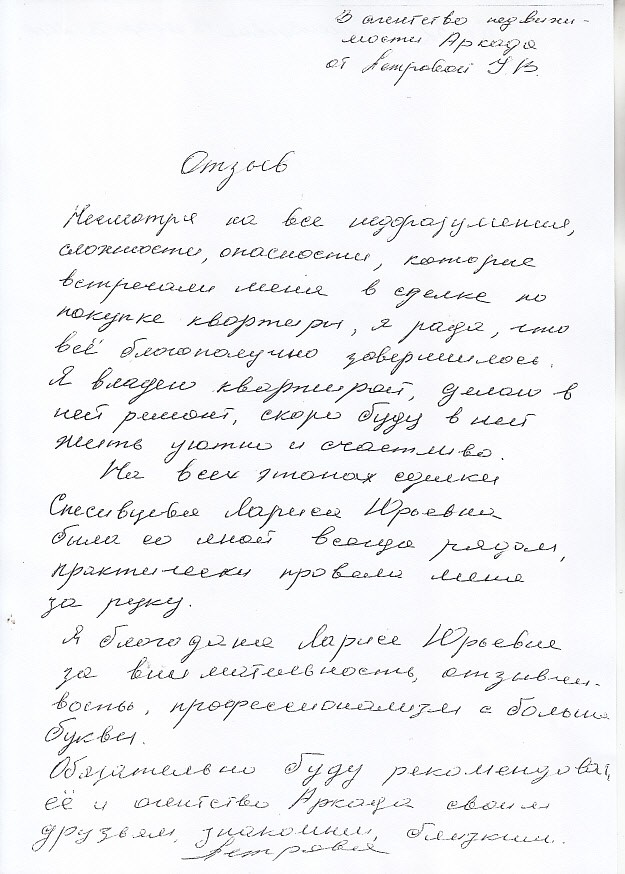 В агентство недвижи-
мости Аркада
от Петровой У.В.
Отзыв
Несмотря на все недоразумения,
сложности, опасности, которые
встречали меня в сделке по
покупке квартиры, я рада, что
всё благополучно завершилось.
Я владею квартирой, делаю в
ней ремонт, скоро буду в ней
жить уютно и счастливо.
На всех этапах сделки
Спесивцева Лариса Юрьевна
была со мной всегда рядом,
практически провела меня
за руку.
Я благодарна Ларисе Юрьевне
за внимательность, отзывчи-
вость, профессионализм с большой
буквы.
Обязательно буду рекомендовать
её и агентство Аркада своим
друзьям, знакомым, близким.
Петрова